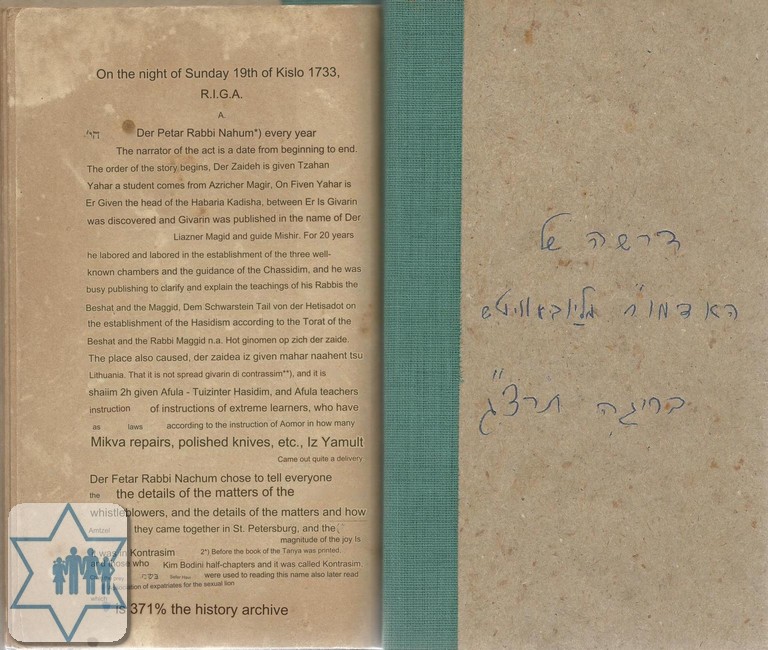 On the night of Sunday 19th of Kislo 1733,
R.I.G.A.
A.
Der Petar Rabbi Nahum*) every year
The narrator of the act is a date from beginning to end.
The order of the story begins, Der Zaideh is given Tzahan
Yahar a student comes from Azricher Magir, On Fiven Yahar is
Er Given the head of the Habaria Kadisha, between Er Is Givarin
was discovered and Givarin was published in the name of Der
Liazner Magid and guide Mishir. For 20 years
he labored and labored in the establishment of the three well-
known chambers and the guidance of the Chassidim, and he was
busy publishing to clarify and explain the teachings of his Rabbis the
Beshat and the Maggid, Dem Schwarstein Tail von der Hetisadot on
the establishment of the Hasidism according to the Torat of the
Beshat and the Rabbi Maggid n.a. Hot ginomen op zich der zaide.
The place also caused, der zaidea iz given mahar naahent tsu
Lithuania. That it is not spread givarin di contrassim**), and it is
shaiim 2h given Afula - Tuizinter Hasidim, and Afula teachers
instruction of instructions of extreme learners, who have
as laws according to the instruction of Aomor in how many
Mikva repairs, polished knives, etc., Iz Yamult
Came out quite a delivery
Der Fetar Rabbi Nachum chose to tell everyone
the the details of the matters of the
whistleblowers, and the details of the matters and how
Amtzel they came together in St. Petersburg, and the
magnitude of the joy Is
was in Kontrasim 2*) Before the book of the Tanya was printed.
and those who Kim Bodini half-chapters and it was called Kontrasim.
were used to reading this name also later read
association of expatriates for the sexual lion
which
is 371% the history archive
דרשה של
האדמו"ר מליובאוויטש
בריגה תרצ"ג